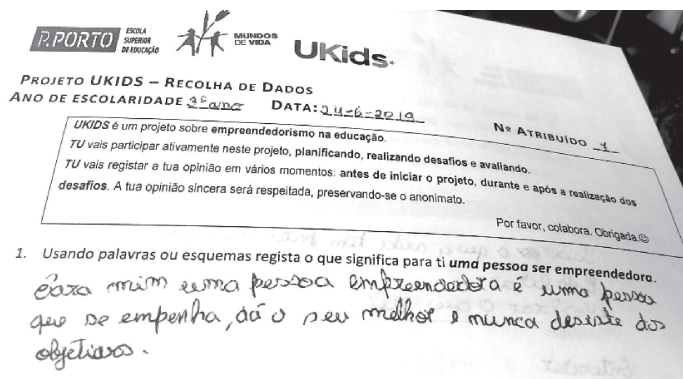 P.PORTO
ESCOLA
SUPERIOR
DE EDUCAÇÃO
MUNDOS
DE VIDA
UKids
PROJETO UKIDS – RECOLHA DE DADOS
ANO DE ESCOLARIDADE 3º ano DATA: 24-6-2019 Nº ATRIBUÍDO 1
UKIDS é um projeto sobre empreendedorismo na educação.
TU vais participar ativamente neste projeto, planificando, realizando desafios e avaliando.
TU vais registar a tua opinião em vários momentos: antes de iniciar o projeto, durante e após a realização dos
desafios. A tua opinião sincera será respeitada, preservando-se o anonimato.
Por favor, colabora. Obrigada.☺
1. Usando palavras ou esquemas regista o que significa para ti uma pessoa ser empreendedora.
Para mim uma pessoa empreendedora é uma pessoa
que se empenha, dá o seu melhor e nunca desiste dos
objetivos.